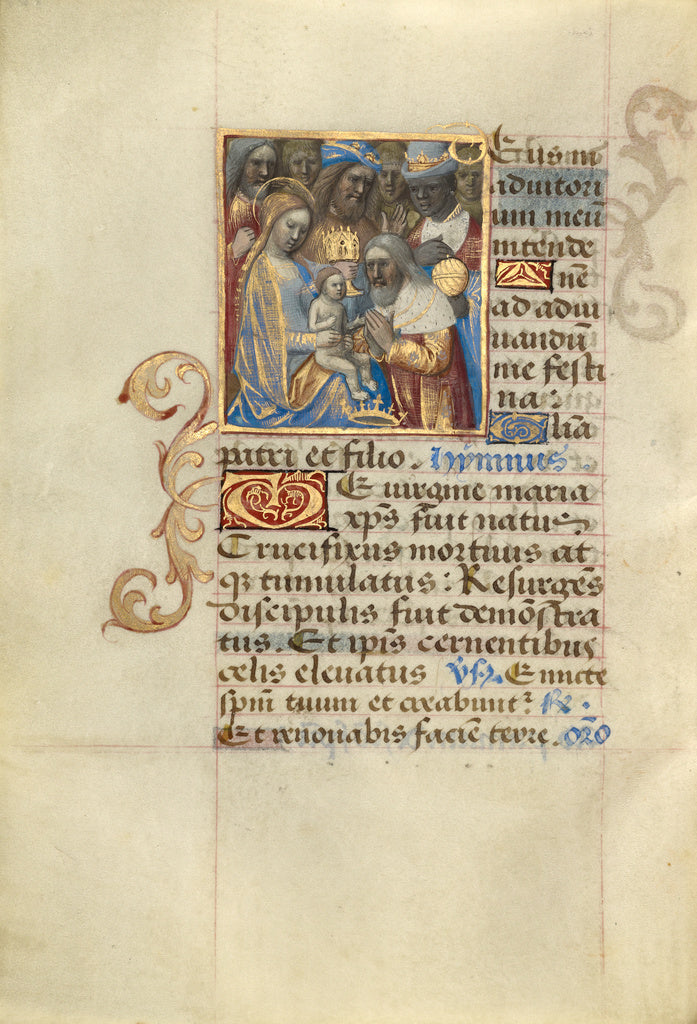 Eus in
adiutori
um meū
intende
nē
ad adiu
uandū
me festi
na.
lia
patri et filio. hymnus.
E uirgine maria
xp̄s fuit natus
Crucifixus mortuus at
qȝ tumulatus: Resurgēs
discipulis fuit demōstra
tus. Et ipīs cernentibus
celis eleuatus v̄s. Emicte
spm̄ tuum et creabunt᷑ R̄.
Et renouabis faciē terre. orō